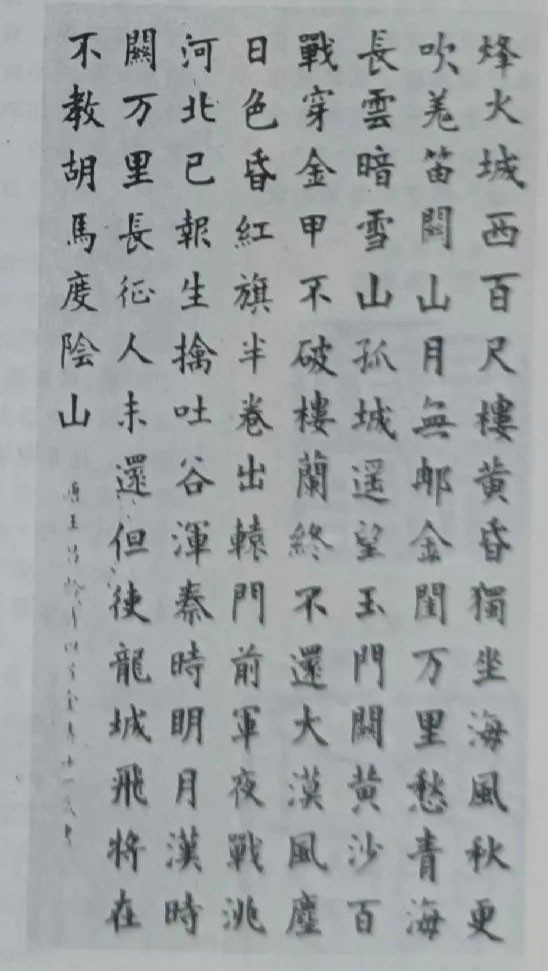 烽火城西百尺樓黄昏獨坐海風秋更
吹羗笛關山月無那金閨万里愁青海
長雲暗雪山孤城遥望玉門關黄沙百
戰穿金甲不破樓蘭終不還大漠風塵
日色昏紅旗半卷出轅門前軍夜戰洮
河北已報生擒吐谷渾秦時明月漢時
關万里長征人未還但使龍城飛将在
不教胡馬度陰山
唐王昌齡